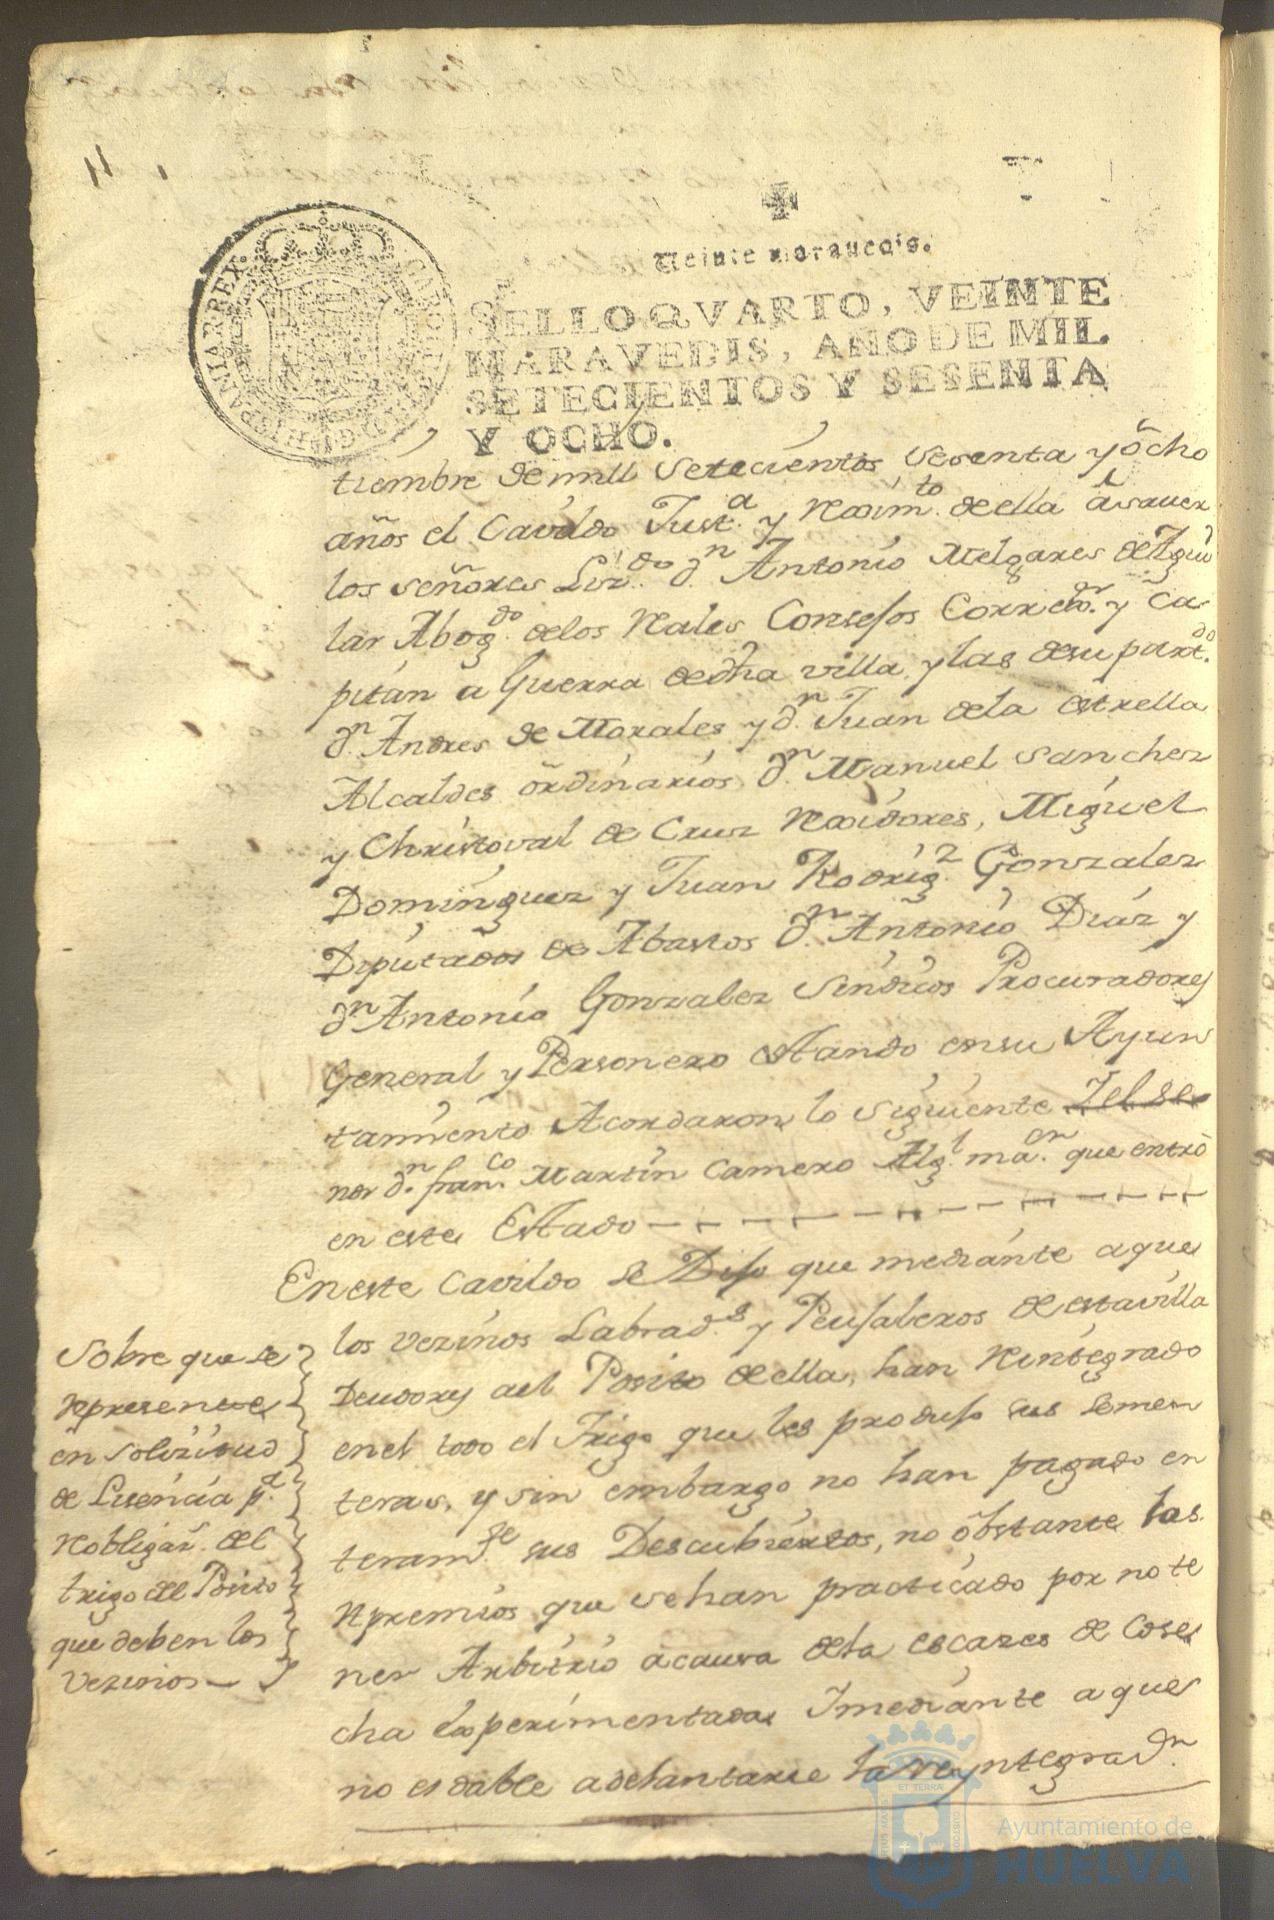 11
HISPANIAR.REX
CAROLVS III D.G.
Veinte marauedis.
SELLO QVARTO, VEINTE
MARAVEDIS, AÑO DE MIL
SETECIENTOS Y SESENTA
Y OCHO.
tiembre de mill setecientos sesenta y õcho
años el Cavildo Just.ª y Rexim.to de ella â saver
los señores Liz.do d.n Antonio Melgares de Agui
lar Abog.do de los Rales Consejos Corre.or y Ca
pitan a Guerra de dha villa y las de su part.do
d.n Andres de Morales y d.n Juan de la estrella
Alcaldes ordinarios d.n Manuel Sanchez
y Christoval de Cruz Rexidores, Miguel
Dominguez y Juan Rodrig.z Gonzalez
Diputados de Abastos d.n Antonio Diaz y
d.n Antonio Gonzalez Sindicos Procuradores
General y Personero estando en su Ayun
tamiento Acordaron lo siguiente Yel Se
ñor d.n fran.co Martin Camero Alg.l ma.or que entrò
en este Estado
En este Cavildo se Dijo que mediante a que
los vezinos Labrad.s y Peujaleros de esta villa
Deudores ael Posito de ella, han Reintegrado
en el todo el Trigo que les produjo sus Semen
teras, y sin embargo no han pagado en
teram.te sus Descubiertos, no obstante los
Apremios que se han practicado por no te
ner Arbitrio a causa de la escazes de Cose
cha experimentada Y mediante a que
no es dable adelantarse la reyntegrad.n
Sobre que se
represente
en solizitud
de Lisencia p.ª
Reobligar. del
trigo del Posito
que deben los
Vezinos
ET TERRA
CUSTODIA
Ayuntamiento de
HUELVA